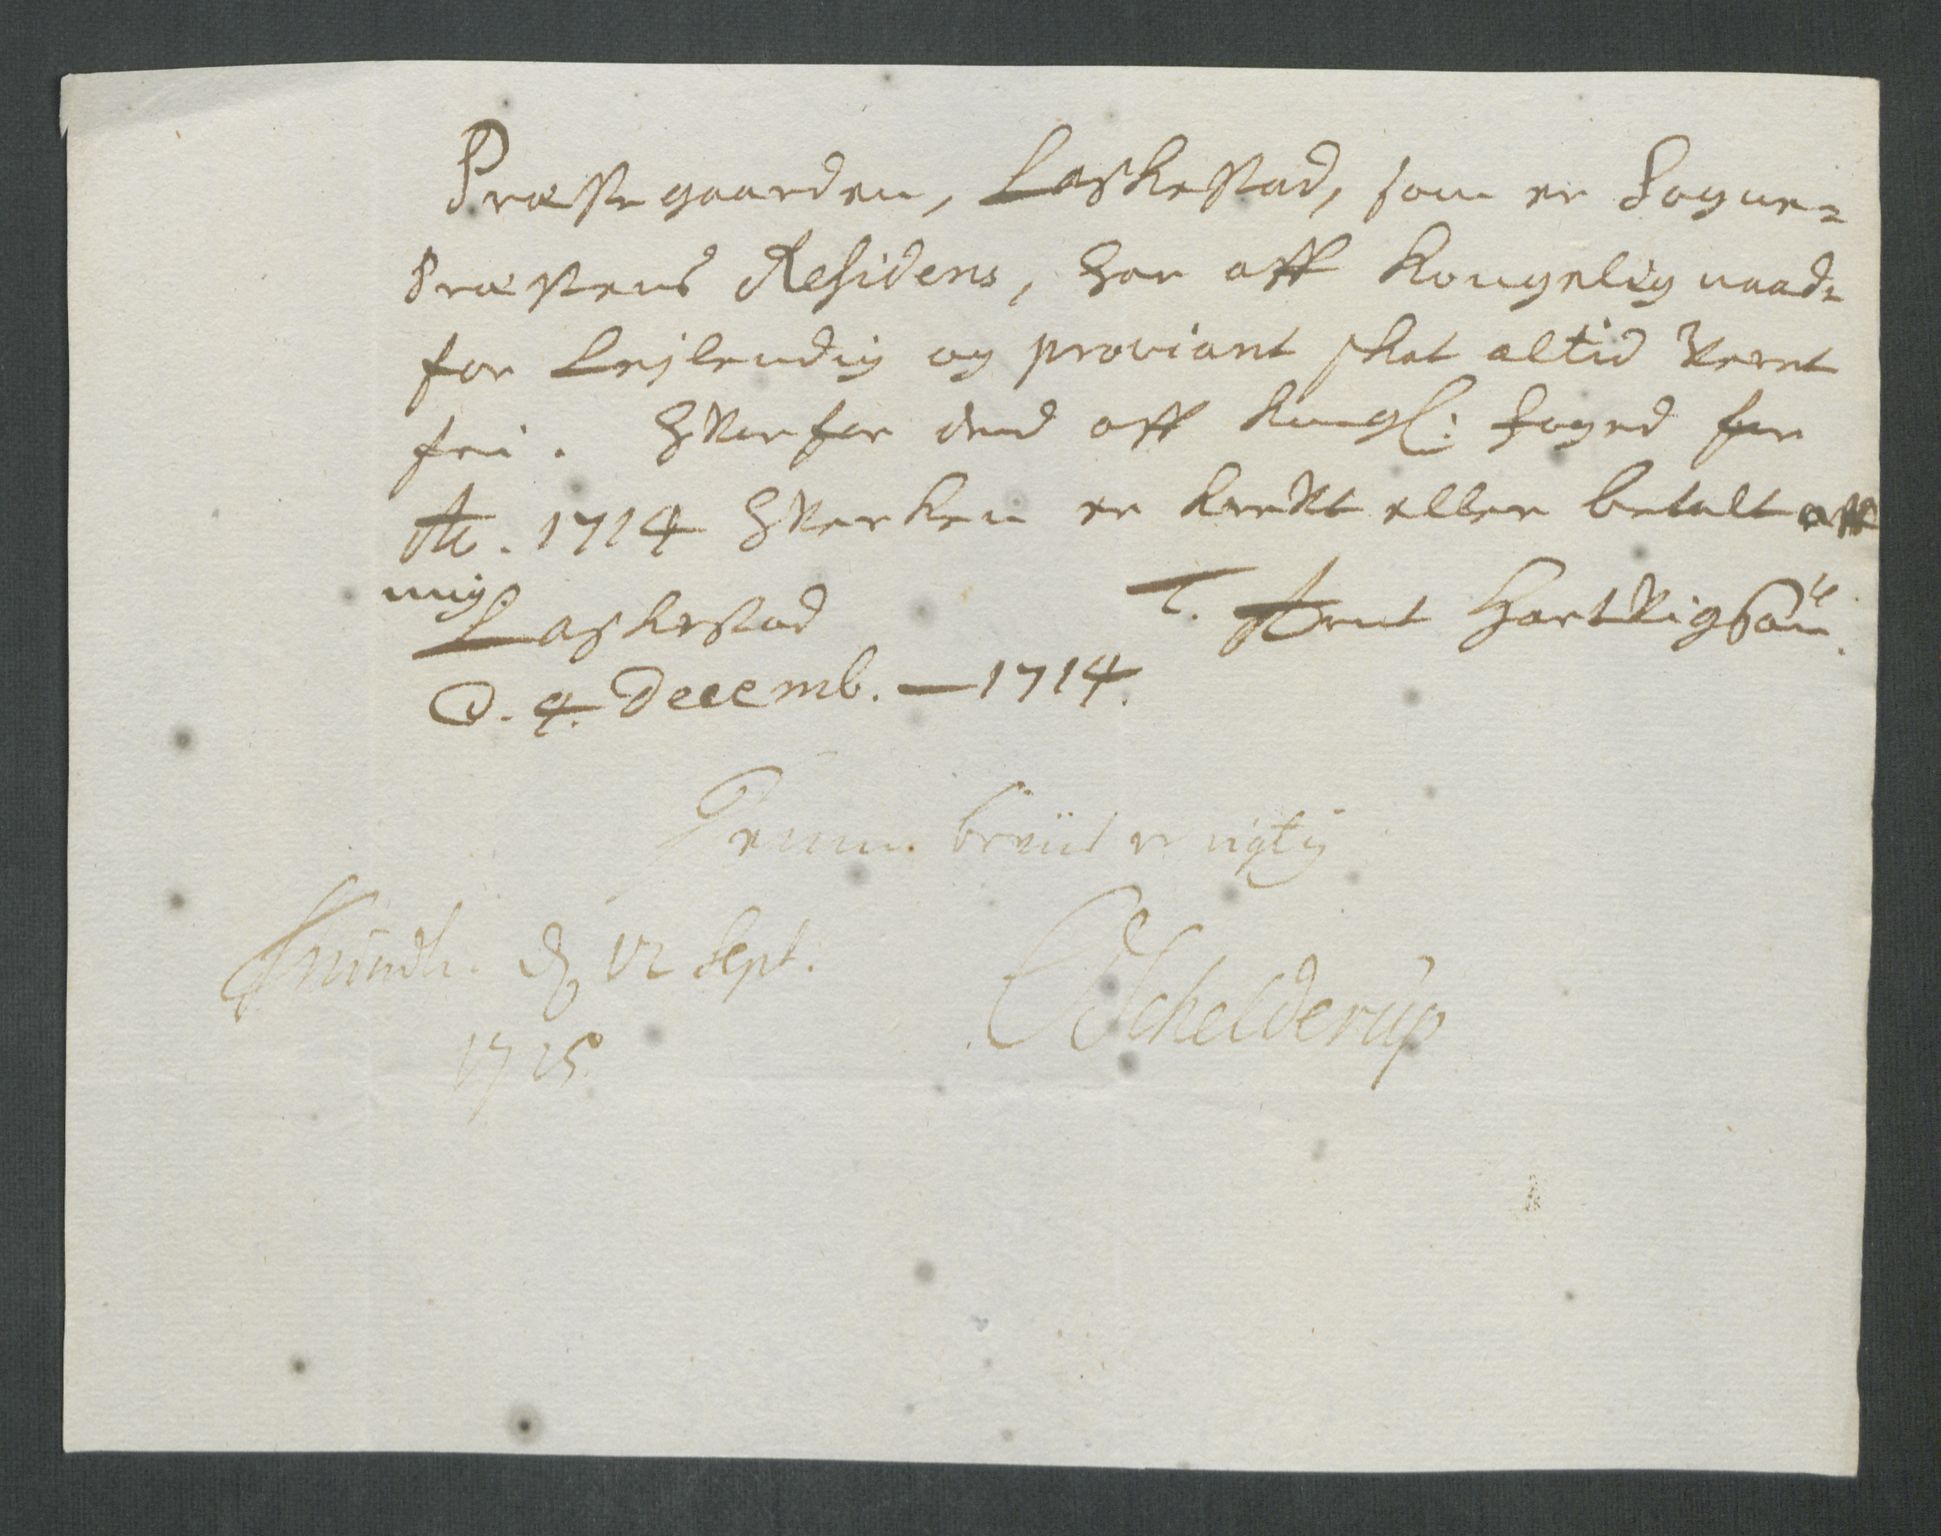 Præstegaarden, Laskestad, som er Sogne=
Præstens Residens, har aff Kongelig naade
for Leylendig og proviant skat altid veret
fri. Hvorfor dend aff Kongl: Foged for
Ao. 1714 Hverken er krevt eller betalt aff
mig.
Laskestad
T. Arent Hartvigsøn
D. 4. Decemb. — 1714.
rigtig
d 12 Sept:
1715.
Schelderup